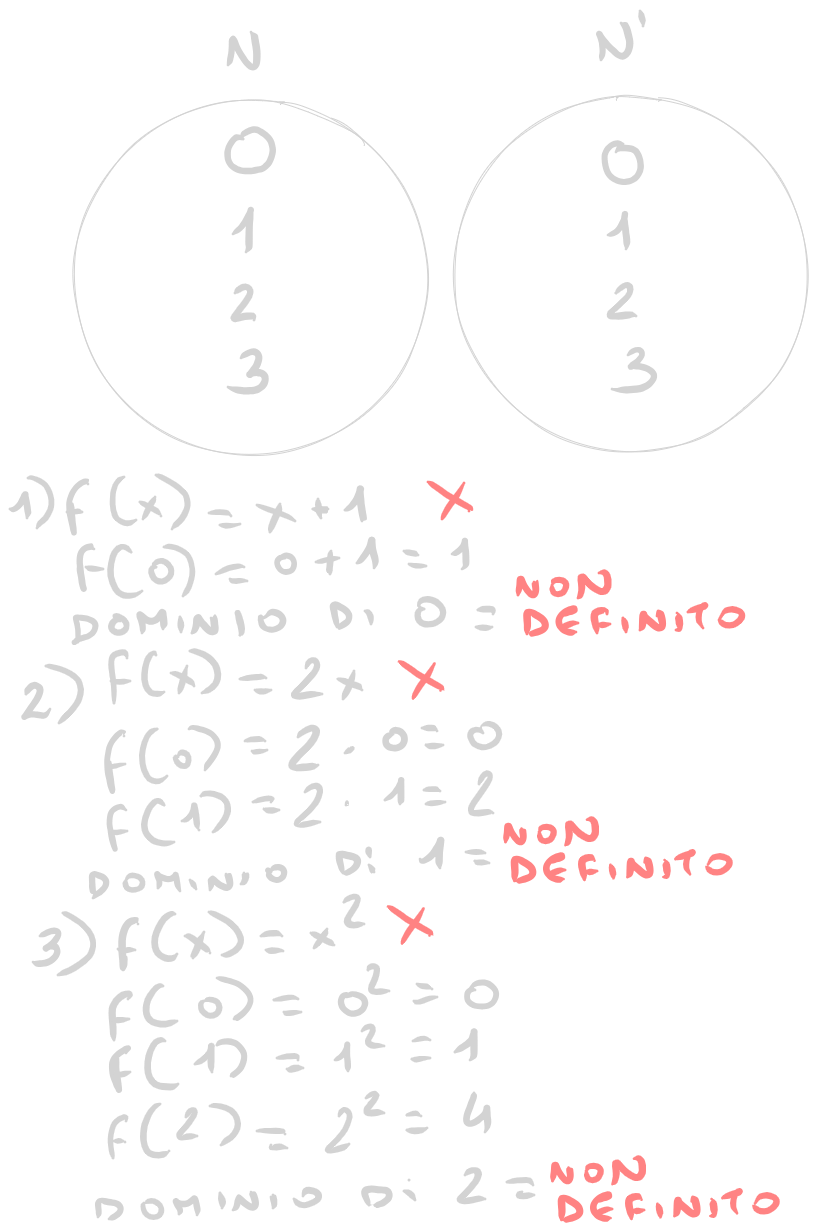 N N'
0 0
1 1
2 2
3 3
1) f(x) = x + 1 X
f(0) = 0 + 1 = 1
DOMINIO Di 0 = NON DEFINITO
2) f(x) = 2x X
f(0) = 2 · 0 = 0
f(1) = 2 · 1 = 2
DOMINIO Di 1 = NON DEFINITO
3) f(x) = x² X
f(0) = 0² = 0
f(1) = 1² = 1
f(2) = 2² = 4
DOMINIO Di 2 = NON DEFINITO